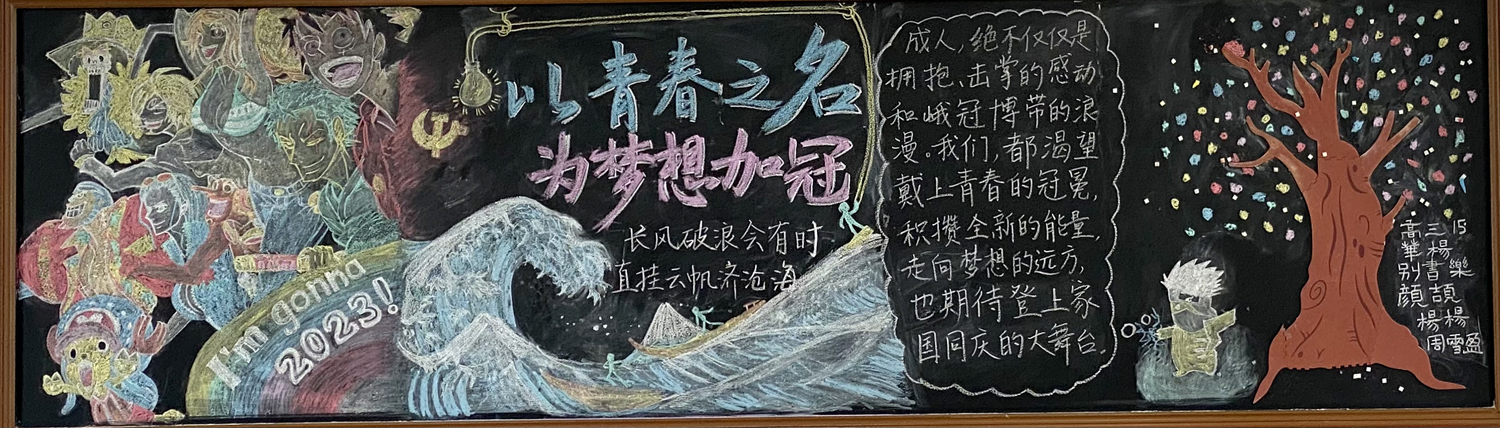 以青春之名
为梦想加冠
长风破浪会有时
直挂云帆济沧海
I'm gonna
2023!
成人,绝不仅仅是
拥抱、击掌的感动
和峨冠博带的浪
漫。我们,都渴望
戴上青春的冠冕,
积攒全新的能量,
走向梦想的远方,
也期待登上家
国同庆的大舞台.
高三15
華楊
别書樂
顔頡
楊楊
周雪盈